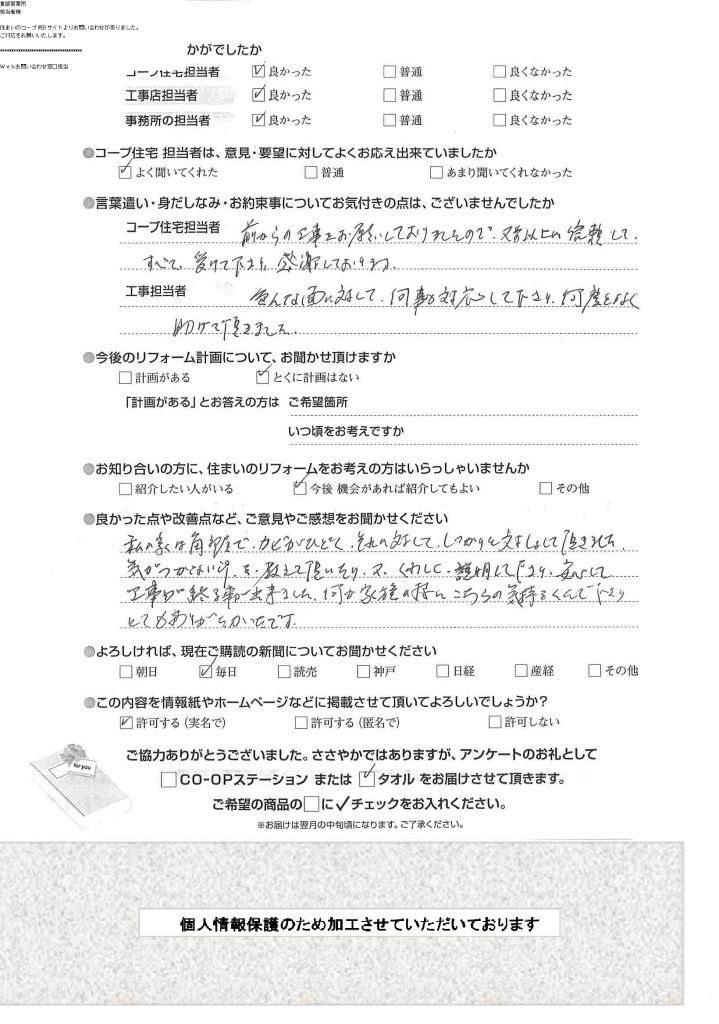 東部営業所
担当者様
住まいのコープ WEBサイトよりお問い合わせがありました。
ご対応をお願いいたします。
Ｗｅｂお問い合わせ窓口担当
かがでしたか
コープ住宅担当者 ☑良かった □普通 □良くなかった
工事店担当者 ☑良かった □普通 □良くなかった
事務所の担当者 ☑良かった □普通 □良くなかった
●コープ住宅 担当者は、意見・要望に対してよくお応え出来ていましたか
☑よく聞いてくれた □普通 □あまり聞いてくれなかった
●言葉遣い・身だしなみ・お約束事についてお気付きの点は、ございませんでしたか
コープ住宅担当者 前からの工事もお願いしておりましたので、以上に信頼して、
すべて、受けて下さり、感謝しております。
工事担当者 色んな面に対して、何事も対応して下さり、何度となく
助けて頂きました。
●今後のリフォーム計画について、お聞かせ頂けますか
□計画がある ☑とくに計画はない
「計画がある」とお答えの方は ご希望箇所
いつ頃をお考えですか
●お知り合いの方に、住まいのリフォームをお考えの方はいらっしゃいませんか
□紹介したい人がいる ☑今後 機会があれば紹介してもよい □その他
●良かった点や改善点など、ご意見やご感想をお聞かせください
私の家は角部屋で、カビがひどく、それに対して、しっかりと対応して頂きました。
気がつかない所、を、教えて頂いたり、又、くわしく、説明して下さり、安心して
工事が終る事が出来ました。何か家族の様に、こちらの気持をくんで下さり
とてもありがたかったです。
●よろしければ、現在ご購読の新聞についてお聞かせください
□朝日 ☑毎日 □読売 □神戸 □日経 □産経 □その他
●この内容を情報紙やホームページなどに掲載させて頂いてよろしいでしょうか?
☑許可する（実名で） □許可する（匿名で） □許可しない
for you
ご協力ありがとうございました。ささやかではありますが、アンケートのお礼として
□CO-OPステーション または ☑タオル をお届けさせて頂きます。
ご希望の商品の□に✓チェックをお入れください。
※お届けは翌月の中旬頃になります。ご了承ください。
個人情報保護のため加工させていただいております